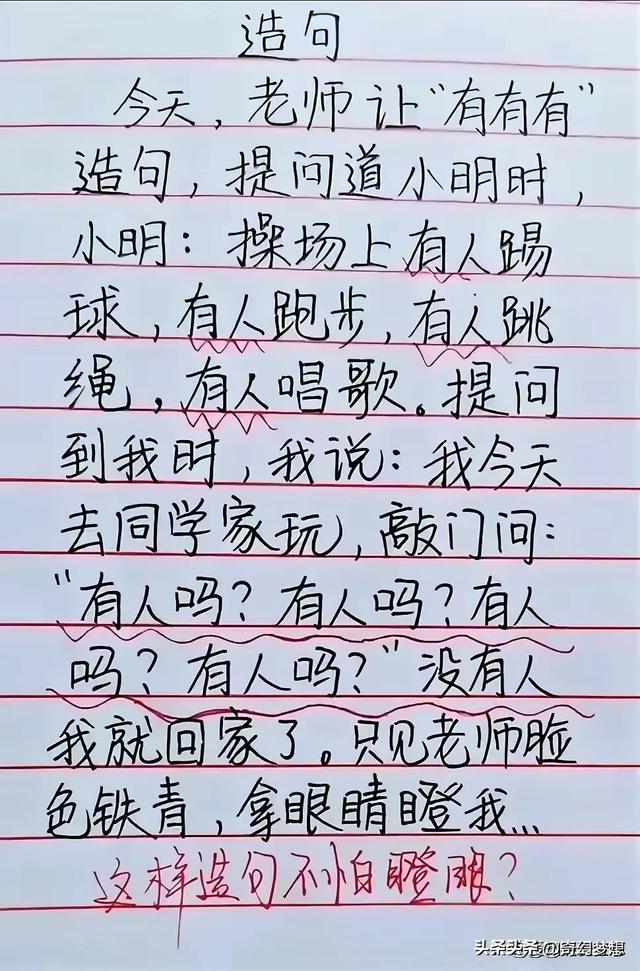 造句
今天，老师让"有有有"
造句，提问道小明时，
小明：操场上有人踢
球，有人跑步，有人跳
绳，有人唱歌。提问
到我时，我说：我今天
去同学家玩，敲门问：
"有人吗？有人吗？有人
吗？有人吗？"没有人
我就回家了。只见老师脸
色铁青，拿眼睛瞪我…
这样造句不怕瞪眼？
头条头条@奇幻梦想